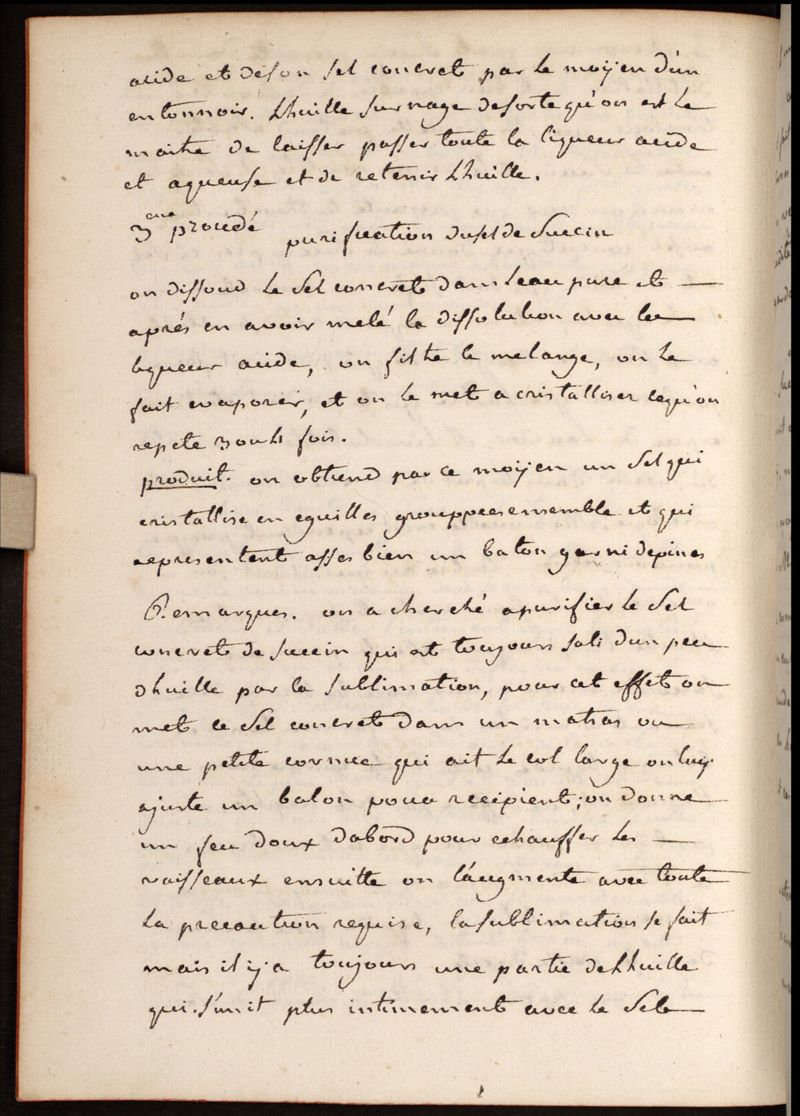 acide et de son sel concret par le moÿen d'un
entonnoir. Lhuille surnage desorte qu'on est le
maitre de laisser passer toute la liqueur acide
et aqueuse et de retenir Lhuille.
3eme procedé
purification du sel de Succin
on dissoud le Sel concret dans leau pure et —
aprés en avoir melé la dissolution avec la
liqueur acide, on filtre le melange, on le
fait evaporer, et on le met a cristalliser cequ'on
repete 3 ou 4 fois.
produit. on obtiend par ce moÿen un Sel qui
cristallise en eguilles grouppeesensemble et qui
representent asses bien un baton garni depines
Remarques. on a cherché apurifier le Sel
concret de Succin qui est toujours sali dun peu
dhuille par la sublimation, pour cet effet on
met ce Sel concret dans un matras ou
une petite cornue qui ait le col large on luy
ajuste un balon pour recipient; on donne
un feu doux dabord pour echauffer les —
vaisseaux ensuitte on l'augmente avec toute
la precaution requise, la sublimation se fait
mais il ÿ a toujours une partie de Lhuille
qui s'unit plus intimement avec le Sel —